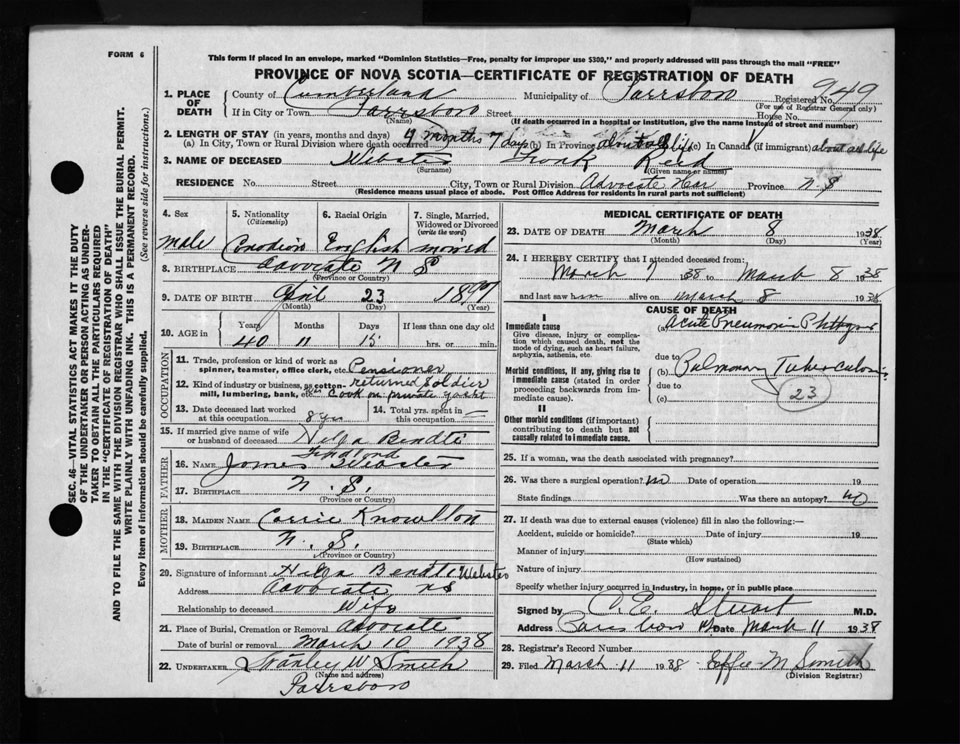 FORM 6
This form if placed in an envelope, marked "Dominion Statistics—Free, penalty for improper use $300," and properly addressed will pass through the mail "FREE"
PROVINCE OF NOVA SCOTIA—CERTIFICATE OF REGISTRATION OF DEATH
1. PLACE OF DEATH County of Cumberland Municipality of Parrsboro Registered No. 949
(For use of Registrar General only)
If in City or Town Parrsboro Street House No.
(Name) (If death occurred in a hospital or institution, give the name instead of street and number)
2. LENGTH OF STAY (in years, months and days)
(a) In City, Town or Rural Division where death occurred 4 months 7 days (b) In Province about all life (c) In Canada (if immigrant) about all life
3. NAME OF DECEASED Webster Frank Reid
(Surname) (Given name or names)
RESIDENCE No. Street City, Town or Rural Division Advocate Har Province N.S
(Residence means usual place of abode. Post Office Address for residents in rural parts not sufficient)
4. Sex
male
5. Nationality
(Citizenship)
Canadian
6. Racial Origin
English
7. Single, Married, Widowed or Divorced
(write the word)
married
8. BIRTHPLACE Advocate N S
(Province or Country)
9. DATE OF BIRTH April 23 1897
(Month) (Day) (Year)
10. AGE in Years Months Days If less than one day old
40 11 15 hrs. or min.
OCCUPATION
11. Trade, profession or kind of work as spinner, teamster, office clerk, etc. Pensioner
12. Kind of industry or business, as cotton-mill, lumbering, bank, etc. returned soldier
Cook on private yacht
13. Date deceased last worked at this occupation 8 yrs
14. Total yrs. spent in this occupation —
15. If married give name of wife or husband of deceased Hilda Bendle
FATHER
16. NAME James Webster
17. BIRTHPLACE N. S.
(Province or Country)
MOTHER
18. MAIDEN NAME Carrie Knowlton
19. BIRTHPLACE N. S.
(Province or Country)
20. Signature of informant Hilda Bendle Webster
Address Advocate NS
Relationship to deceased Wife
21. Place of Burial, Cremation or Removal Advocate
Date of burial or removal March 10 1938
22. UNDERTAKER Stanley W Smith
(Name and address)
Parrsboro
MEDICAL CERTIFICATE OF DEATH
23. DATE OF DEATH March 8 1938
(Month) (Day) (Year)
24. I HEREBY CERTIFY that I attended deceased from:
March 7 1938 to March 8 1938
and last saw him alive on March 8 1938
CAUSE OF DEATH
I
Immediate cause
Give disease, injury or complication which caused death, not the mode of dying, such as heart failure, asphyxia, asthenia, etc.
(a) Acute Pneumonic Phthisis
due to
Morbid conditions, if any, giving rise to immediate cause (stated in order proceeding backwards from immediate cause).
(b) Pulmonary Tuberculosis
due to
(c)
23
II
Other morbid conditions (if important) contributing to death but not causally related to immediate cause.
25. If a woman, was the death associated with pregnancy?
26. Was there a surgical operation? no Date of operation 19
State findings Was there an autopsy? no
27. If death was due to external causes (violence) fill in also the following:—
Accident, suicide or homicide? Date of injury 19
(State which)
Manner of injury
(How sustained)
Nature of injury
Specify whether injury occurred in industry, in home, or in public place
Signed by C.E. Stuart M.D.
Address Parrsboro NS Date March 11 1938
28. Registrar's Record Number
29. Filed March 11 1938 Effie M Smith
(Division Registrar)
SEC. 46—VITAL STATISTICS ACT MAKES IT THE DUTY
OF THE UNDERTAKER OR PERSON ACTING AS UNDER-
TAKER TO OBTAIN ALL THE PARTICULARS REQUIRED
IN THE "CERTIFICATE OF REGISTRATION OF DEATH"
AND TO FILE THE SAME WITH THE DIVISION REGISTRAR WHO SHALL ISSUE THE BURIAL PERMIT.
WRITE PLAINLY WITH UNFADING INK. THIS IS A PERMANENT RECORD.
Every item of information should be carefully supplied. (See reverse side for instructions.)